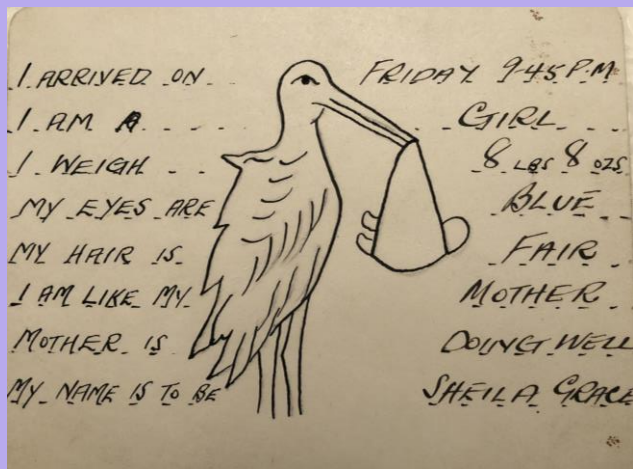 I ARRIVED ON FRIDAY 9-45 P.M
I AM A GIRL
I WEIGH 8 LBS 8 OZS
MY EYES ARE BLUE
MY HAIR IS FAIR
I AM LIKE MY MOTHER
MOTHER IS DOING WELL
MY NAME IS TO BE SHEILA GRACE